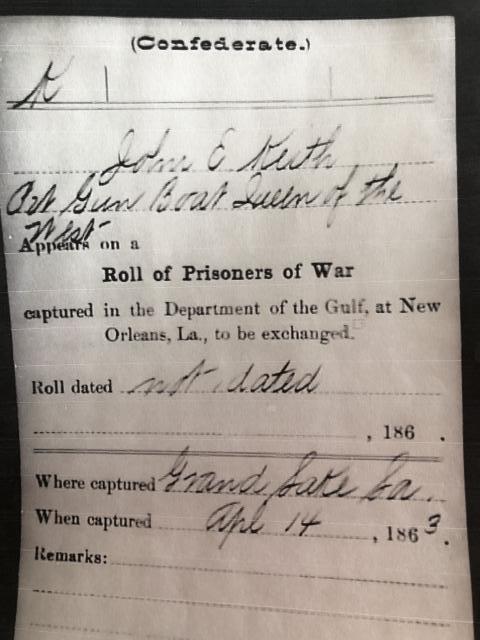 (Confederate.)
K
John E Keith
Art Gun Boat Queen of the
West
Appears on a
Roll of Prisoners of War
captured in the Department of the Gulf, at New
Orleans, La., to be exchanged.
Roll dated not dated
, 186 .
Where captured Grand Lake La.
When captured Apl 14, 1863.
Remarks: